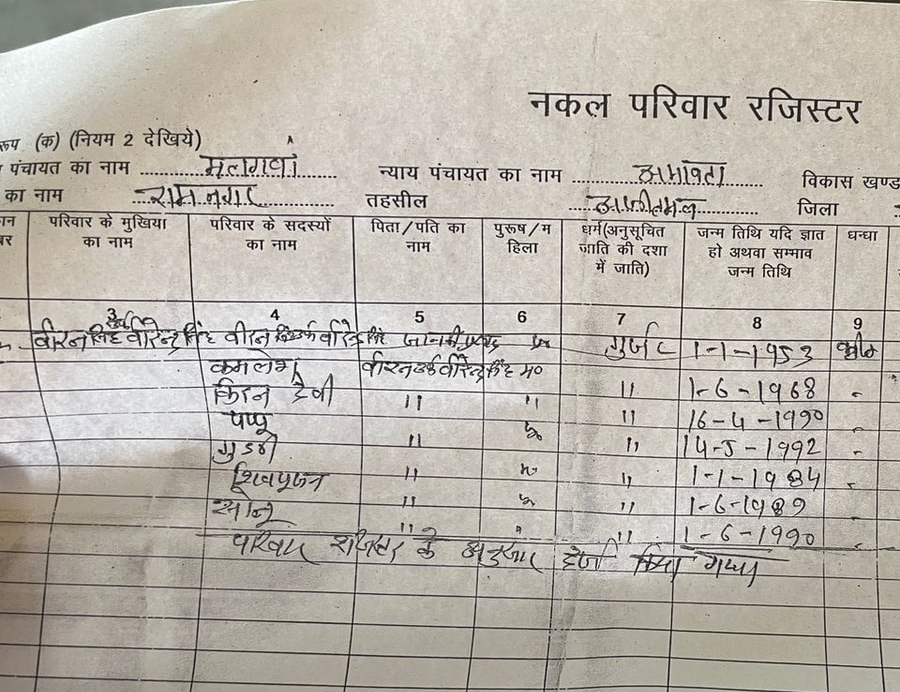 नकल परिवार रजिस्टर
रूप (क) (नियम 2 देखिये)
पंचायत का नाम मलगवां न्याय पंचायत का नाम अमावता विकास खण्ड
का नाम रामनगर तहसील अजीतमल जिला
परिवार के मुखिया का नाम परिवार के सदस्यों का नाम पिता/पति का नाम पुरूष/महिला धर्म(अनुसूचित जाति की दशा में जाति) जन्म तिथि यदि ज्ञात हो अथवा सम्भाव जन्म तिथि धन्धा
3 4 5 6 7 8 9
वीरन सिंह उर्फ वीरेन्द्र सिंह वीरन सिंह उर्फ वीरेन्द्र सिंह जानकी प्रसाद गुर्जर 1-1-1953
कमलेश वीरन उर्फ वीरेन्द्र सिंह म० " 1-6-1968
किरन देवी " " " 16-4-1990
पप्पू " " 14-5-1992
गुड्डी " " 1-1-1984
शिवपूजन " " 1-6-1989
सोनू " " 1-6-1990
परिवार रजिस्टर के अनुसार दर्ज किया गया